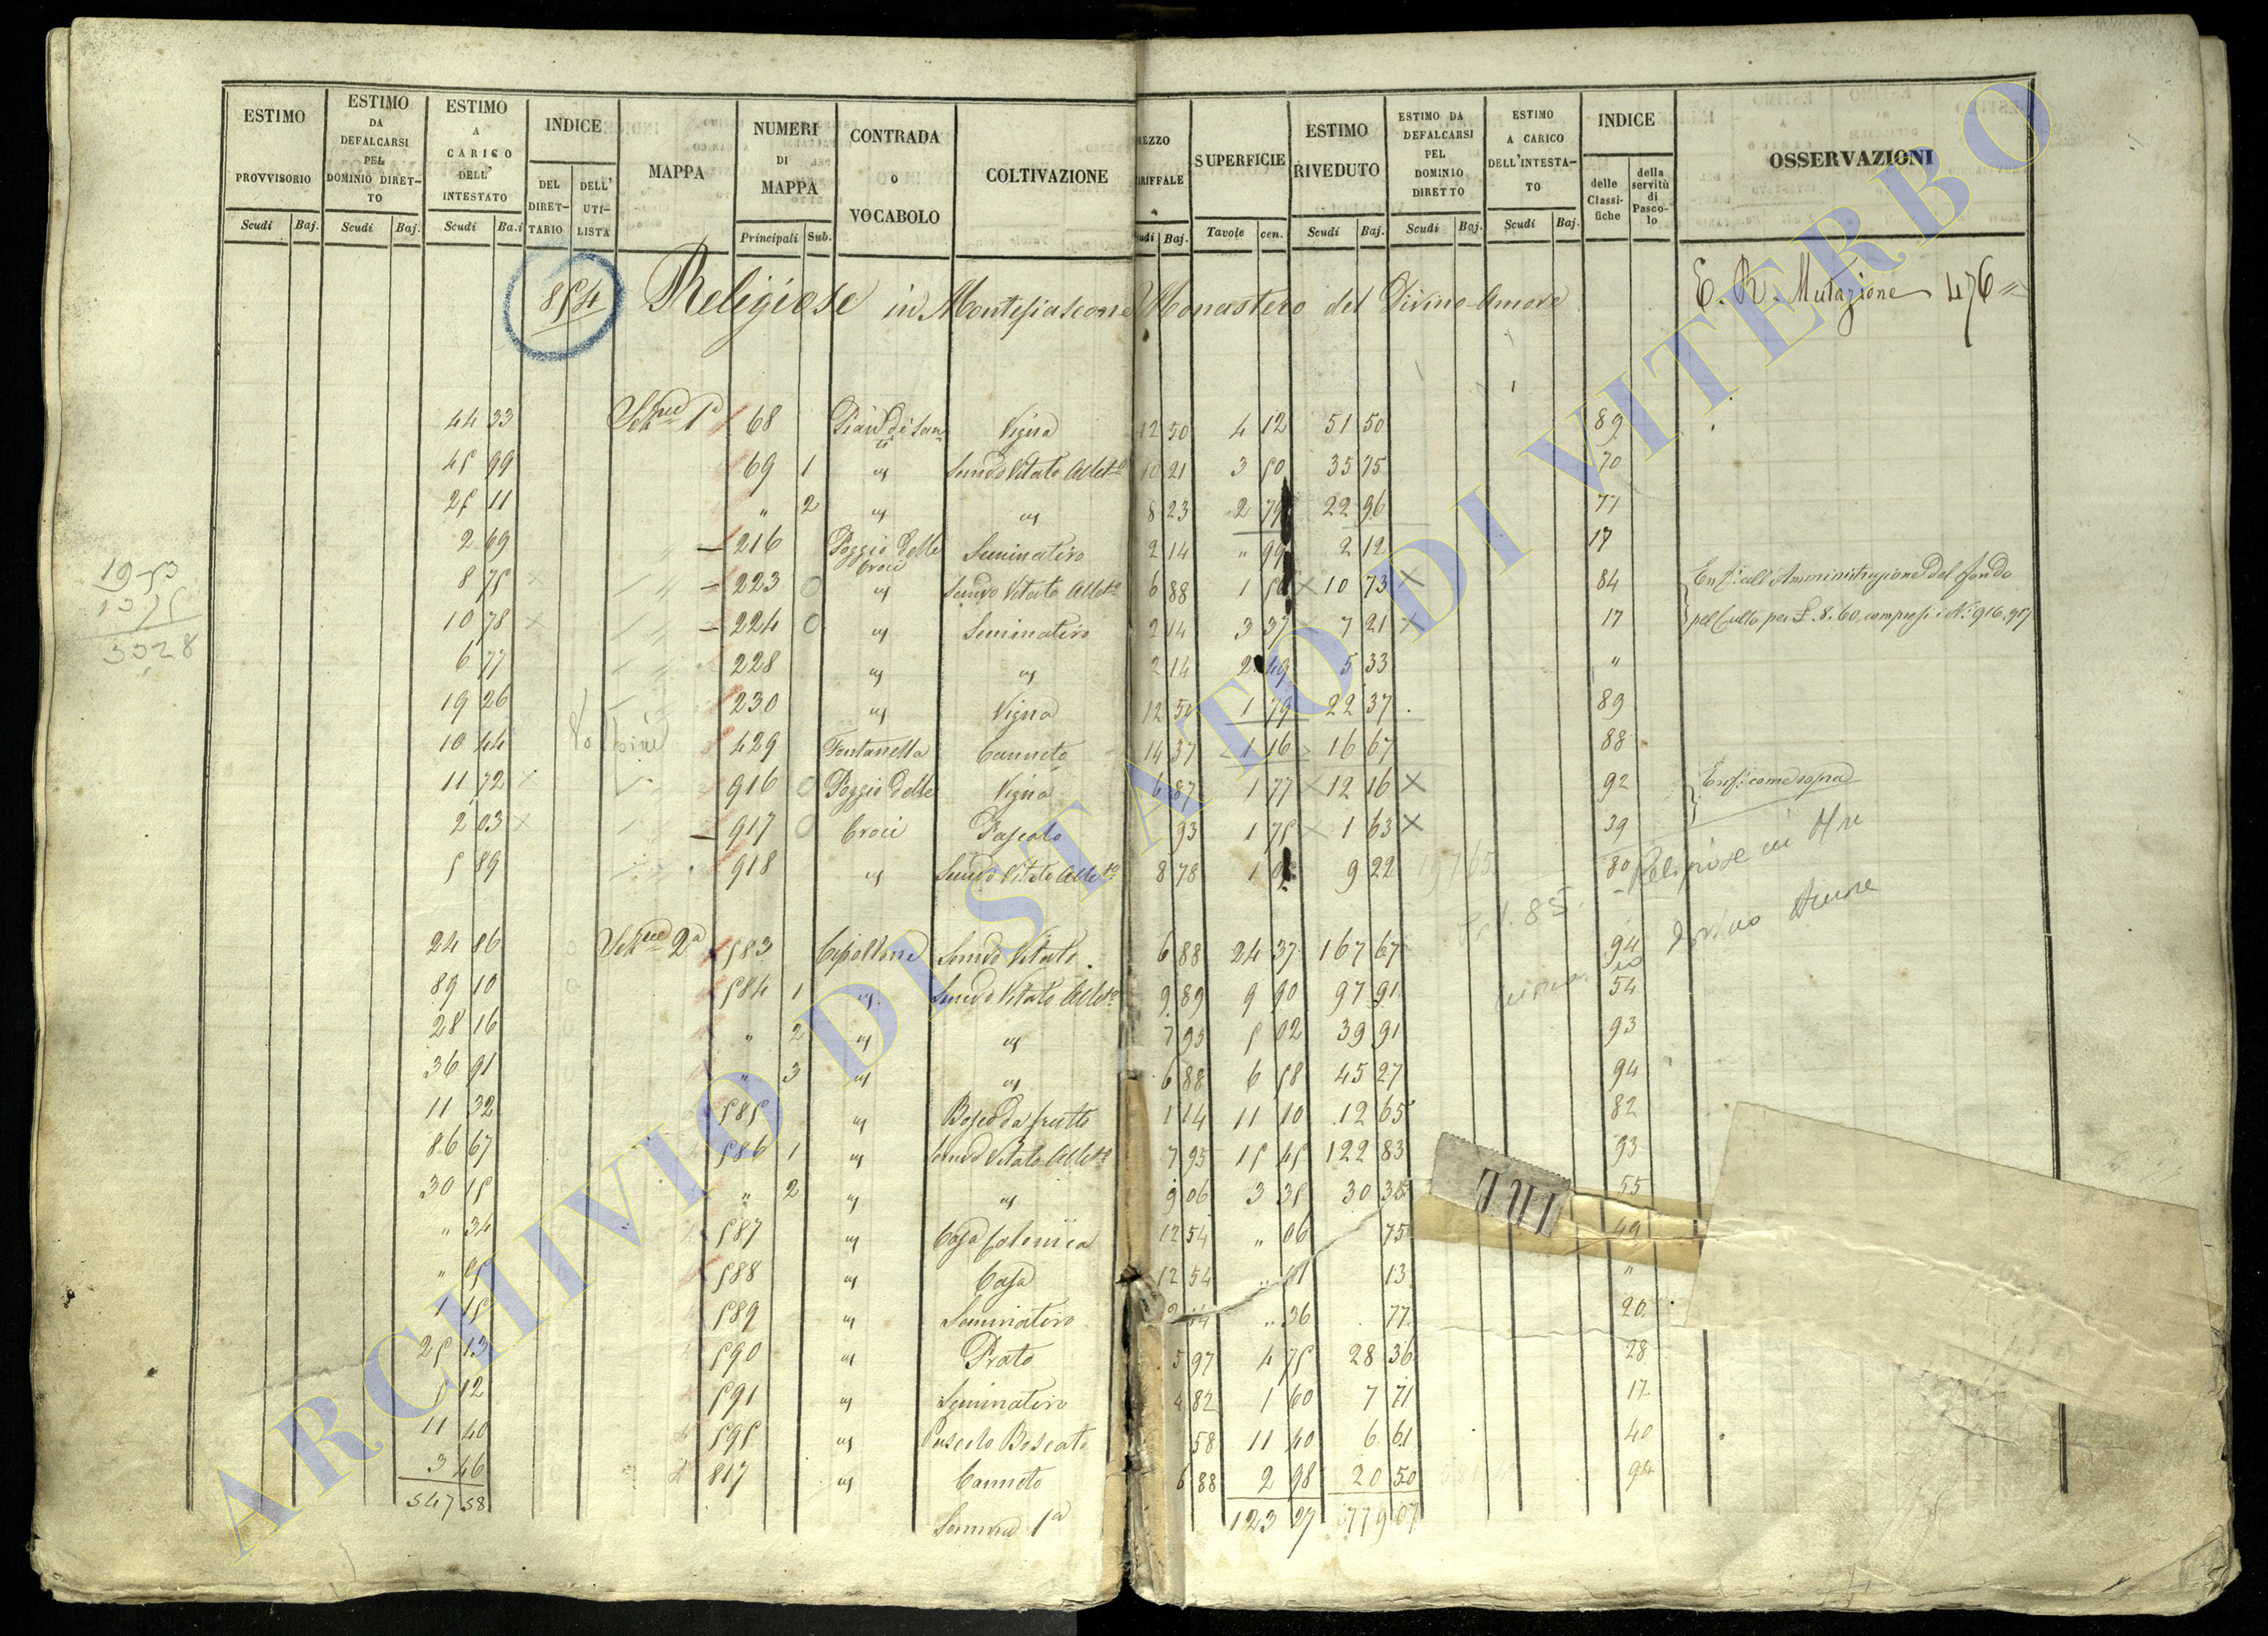 ESTIMO PROVVISORIO Scudi Baj.
ESTIMO DA DEFALCARSI PEL DOMINIO DIRET-TO Scudi Baj.
ESTIMO A CARICO DELL' INTESTATO Scudi Ba.i
INDICE DEL DIRET-TARIO DELL' UTI-LISTA
MAPPA
NUMERI DI MAPPA Principali Sub.
CONTRADA O VOCABOLO
COLTIVAZIONE
REZZO ARIFFALE udi Baj.
SUPERFICIE Tavole cen.
ESTIMO RIVEDUTO Scudi Baj.
ESTIMO DA DEFALCARSI PEL DOMINIO DIRETTO Scudi Baj.
ESTIMO A CARICO DELL'INTESTA-TO Scudi Baj.
INDICE delle Classi-fiche della servitù di Pasco-lo
OSSERVAZIONI
854 Religiose in Montefiascone Monastero del Divino Amore E. R. Mutazione 476
44 33 Sez.ne 1a 68 Vigna 12 50 4 12 51 50 89
45 99 69 1 " Semvo Vitato Albto 10 21 3 50 35 75 70
25 11 " 2 " " 8 23 2 79 22 96 77
2 69 216 Poggio delle Croci Seminativo 2 14 " 99 2 12 17
8 75 × 223 O " Semvo Vitato Albto 6 88 1 56 × 10 73 × 84 Enf. all'Amministrazione del fondo
10 78 × 224 O " Seminativo 2 14 3 37 7 21 × 17 pel Culto per £ 8.60 compresi i N. 916, 917
6 77 228 " " 2 14 2 49 5 33 "
19 26 230 " Vigna 12 50 1 79 22 37 89
10 44 429 Fontanella Canneto 14 37 1 16 16 67 88
11 72 × 916 O Poggio delle Vigna 6 87 1 77 × 12 16 × 92 Enf. come sopra
2 03 × 917 O Croci Pascolo 93 1 75 × 1 63 × 39
5 89 918 " Semvo Vitato Albto 8 78 1 05 9 22 80 Religiose in
Divino Amore
24 86 Sez.ne 2a 583 Cipollone Semvo Vitato 6 88 24 37 167 67 94
89 10 584 1 " Semvo Vitato Albto 9 89 9 90 97 91 54
28 16 " 2 " " 7 95 5 02 39 91 93
36 91 " 3 " " 6 88 6 58 45 27 94
11 32 585 " Bosco da frutto 1 14 11 10 12 65 82
86 67 586 1 " Semvo Vitato Albto 7 95 15 45 122 83 93
30 15 " 2 " " 9 06 3 35 30 35 55
" 34 587 " Casa Colonica 12 54 " 06 75 49
588 " Casa 12 54 13 "
1 15 589 " Seminativo " 36 77 20
25 13 590 " Prato 5 97 4 75 28 36 28
5 12 591 " Seminativo 4 82 1 60 7 71 17
11 40 595 " Pascolo Boscato 58 11 40 6 61 40
3 46 817 " Canneto 6 88 2 98 20 50 94
547 58 Somma 1a 123 27 779 07
19-53
3028
ARCHIVIO DI STATO DI VITERBO